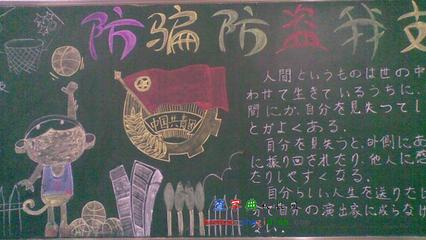 防骗防盗我支
中国共青团
人間というものは世の中
わせて生きているうちに、
間にか、自分を見失ってし
とがよくある。
自分を見失うと、外側にあ
に振り回されたり、他人に惑
たりしやすくなる。
自分らしい人生を送りたけ
分で自分の演出家に成らなけ
さい。